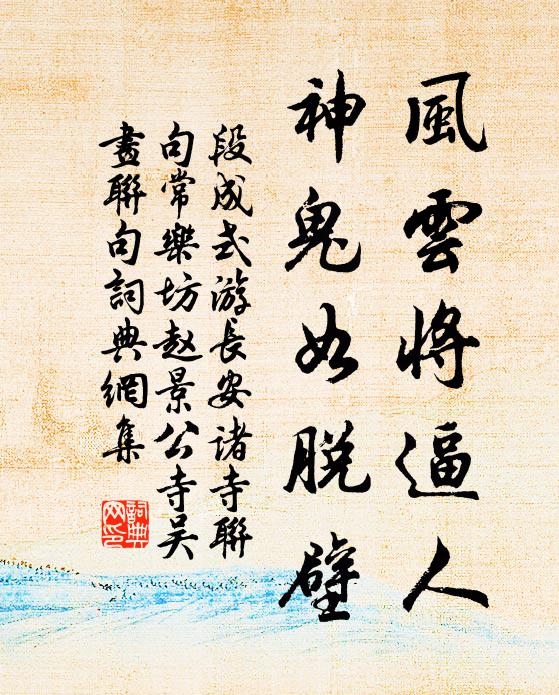 風雲將逼人
神鬼如脱壁
段成式游長安诸寺聯
句常樂坊赵景公寺吴
畫聯句詞典網集
詞典
网印